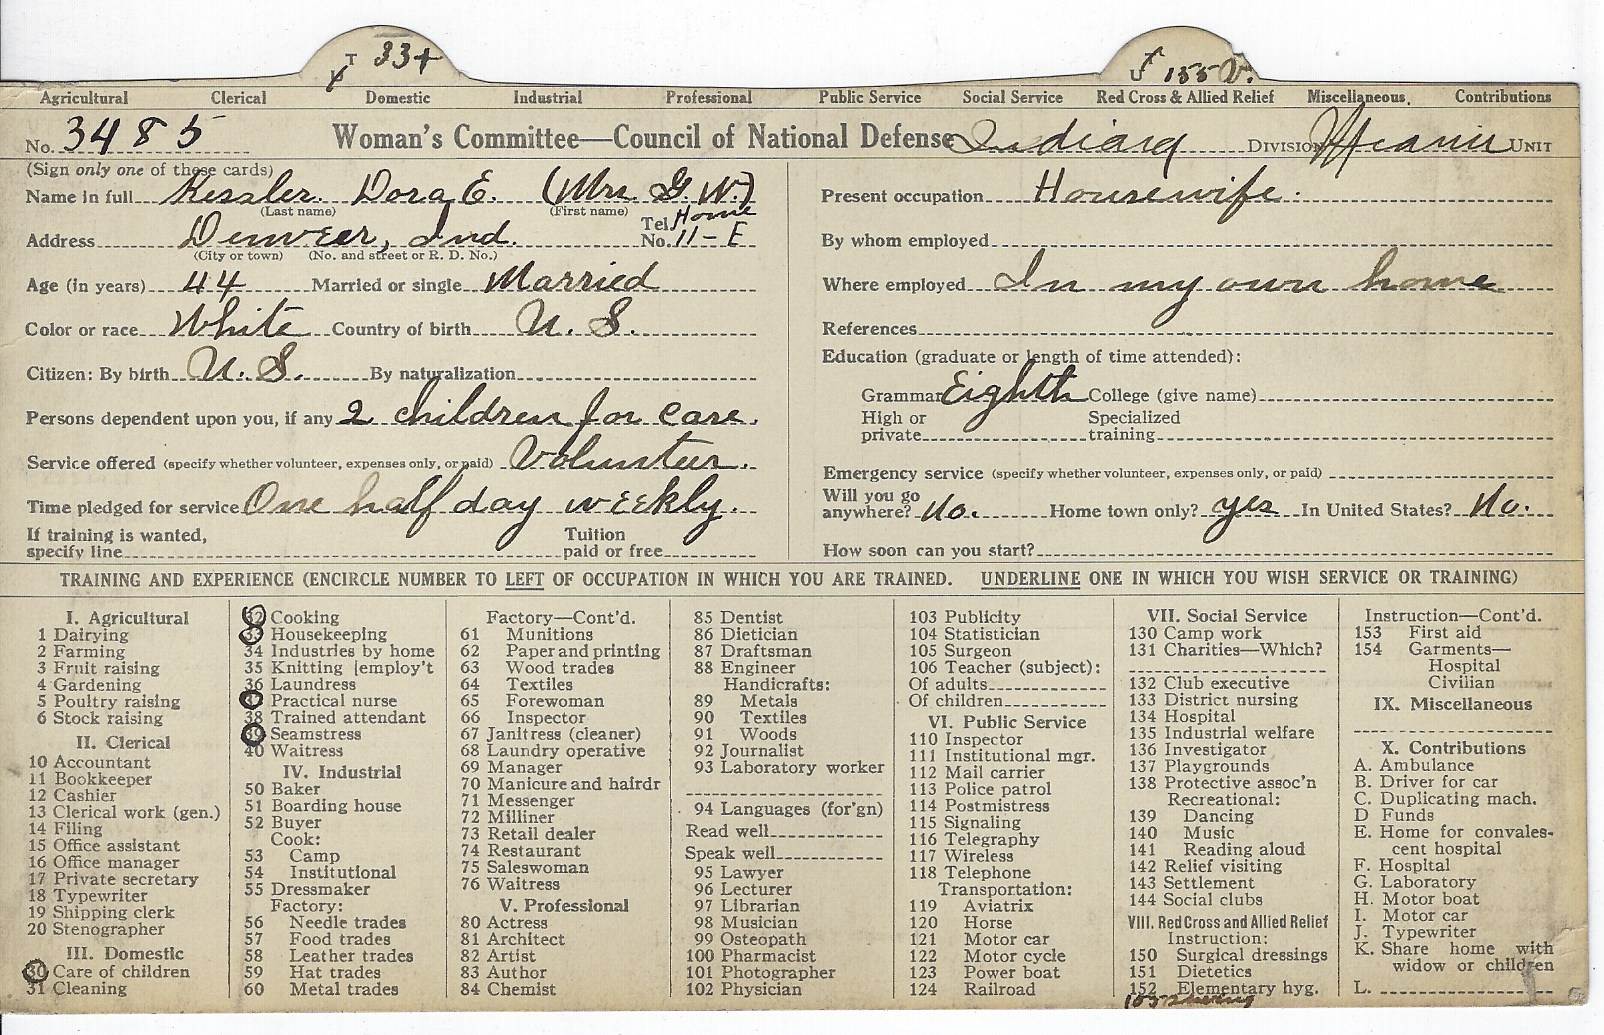 T 33+
T 155 V.
Agricultural Clerical Domestic Industrial Professional Public Service Social Service Red Cross & Allied Relief Miscellaneous. Contributions
No. 3485 Woman's Committee—Council of National Defense Indiana DIVISION Miami UNIT
(Sign only one of these cards)
Name in full Kessler. Dora E. (Mrs. G. W.)
(Last name) (First name)
Address Denver, Ind. Tel. No. Home 11-E
(City or town) (No. and street or R. D. No.)
Age (in years) 44 Married or single Married
Color or race White Country of birth U. S.
Citizen: By birth U. S. By naturalization
Persons dependent upon you, if any 2 children for care.
Service offered (specify whether volunteer, expenses only, or paid) Volunteer.
Time pledged for service One half day weekly.
If training is wanted,
specify line Tuition paid or free
Present occupation Housewife.
By whom employed
Where employed In my own home
References
Education (graduate or length of time attended):
Grammar Eighth College (give name)
High or private Specialized training
Emergency service (specify whether volunteer, expenses only, or paid)
Will you go anywhere? No. Home town only? yes In United States? No.
How soon can you start?
TRAINING AND EXPERIENCE (ENCIRCLE NUMBER TO LEFT OF OCCUPATION IN WHICH YOU ARE TRAINED. UNDERLINE ONE IN WHICH YOU WISH SERVICE OR TRAINING)
I. Agricultural
1 Dairying
2 Farming
3 Fruit raising
4 Gardening
5 Poultry raising
6 Stock raising
II. Clerical
10 Accountant
11 Bookkeeper
12 Cashier
13 Clerical work (gen.)
14 Filing
15 Office assistant
16 Office manager
17 Private secretary
18 Typewriter
19 Shipping clerk
20 Stenographer
III. Domestic
30 Care of children
31 Cleaning
32 Cooking
33 Housekeeping
34 Industries by home
35 Knitting [employ't
36 Laundress
37 Practical nurse
38 Trained attendant
39 Seamstress
40 Waitress
IV. Industrial
50 Baker
51 Boarding house
52 Buyer
Cook:
53 Camp
54 Institutional
55 Dressmaker
Factory:
56 Needle trades
57 Food trades
58 Leather trades
59 Hat trades
60 Metal trades
Factory—Cont'd.
61 Munitions
62 Paper and printing
63 Wood trades
64 Textiles
65 Forewoman
66 Inspector
67 Janitress (cleaner)
68 Laundry operative
69 Manager
70 Manicure and hairdr
71 Messenger
72 Milliner
73 Retail dealer
74 Restaurant
75 Saleswoman
76 Waitress
V. Professional
80 Actress
81 Architect
82 Artist
83 Author
84 Chemist
85 Dentist
86 Dietician
87 Draftsman
88 Engineer
Handicrafts:
89 Metals
90 Textiles
91 Woods
92 Journalist
93 Laboratory worker
94 Languages (for'gn)
Read well
Speak well
95 Lawyer
96 Lecturer
97 Librarian
98 Musician
99 Osteopath
100 Pharmacist
101 Photographer
102 Physician
103 Publicity
104 Statistician
105 Surgeon
106 Teacher (subject):
Of adults
Of children
VI. Public Service
110 Inspector
111 Institutional mgr.
112 Mail carrier
113 Police patrol
114 Postmistress
115 Signaling
116 Telegraphy
117 Wireless
118 Telephone
Transportation:
119 Aviatrix
120 Horse
121 Motor car
122 Motor cycle
123 Power boat
124 Railroad
VII. Social Service
130 Camp work
131 Charities—Which?
132 Club executive
133 District nursing
134 Hospital
135 Industrial welfare
136 Investigator
137 Playgrounds
138 Protective assoc'n
Recreational:
139 Dancing
140 Music
141 Reading aloud
142 Relief visiting
143 Settlement
144 Social clubs
VIII. Red Cross and Allied Relief
Instruction:
150 Surgical dressings
151 Dietetics
152 Elementary hyg.
155 Sewing
Instruction—Cont'd.
153 First aid
154 Garments—
Hospital
Civilian
IX. Miscellaneous
X. Contributions
A. Ambulance
B. Driver for car
C. Duplicating mach.
D Funds
E. Home for convales-
cent hospital
F. Hospital
G. Laboratory
H. Motor boat
I. Motor car
J. Typewriter
K. Share home with
widow or children
L.